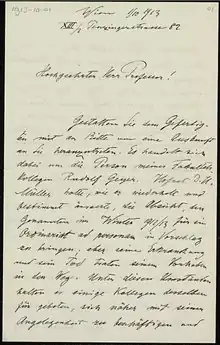 Wien 1/10 1913
XIII/2 Penzingerstrasse 82
Hochgeehrter Herr Professor!
Gestatten Sie dem Gefertig-
ten mit der Bitte um eine Auskunft
an Sie heranzutreten. Es handelt sich
dabei um die Person meines Fakultäts-
kollegen Rudolf Geyer. Hofrat D. H.
Müller hatte, wie er wiederholt und
bestimmt äusserte, die Absicht den
Genannten im Winter 1912/13 für ein
Ordinariat ad personam in Vorschlag
zu bringen; aber seine Erkrankung
und sein Tod traten seinem Vorhaben
in den Weg. Unter diesen Umständen
halten es einige Kollegen desselben
für geboten, sich näher mit seiner
Angelegenheit zu beschäftigen und